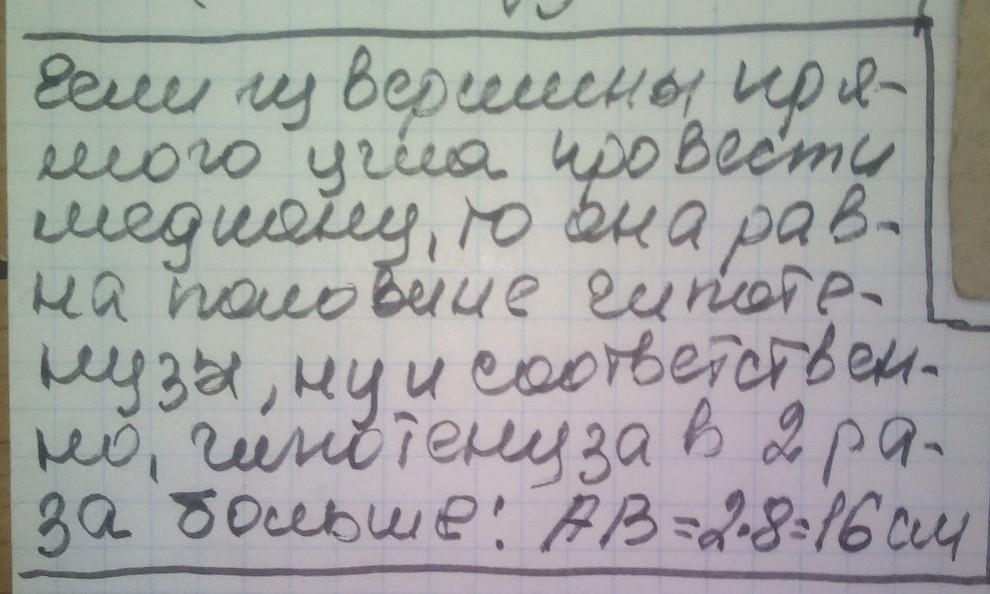 Если из вершины пря-
мого угла провести
медиану, то она рав-
на половине гипоте-
нузы, ну и соответствен-
но, гипотенуза в 2 ра-
за больше: AB=2·8=16см